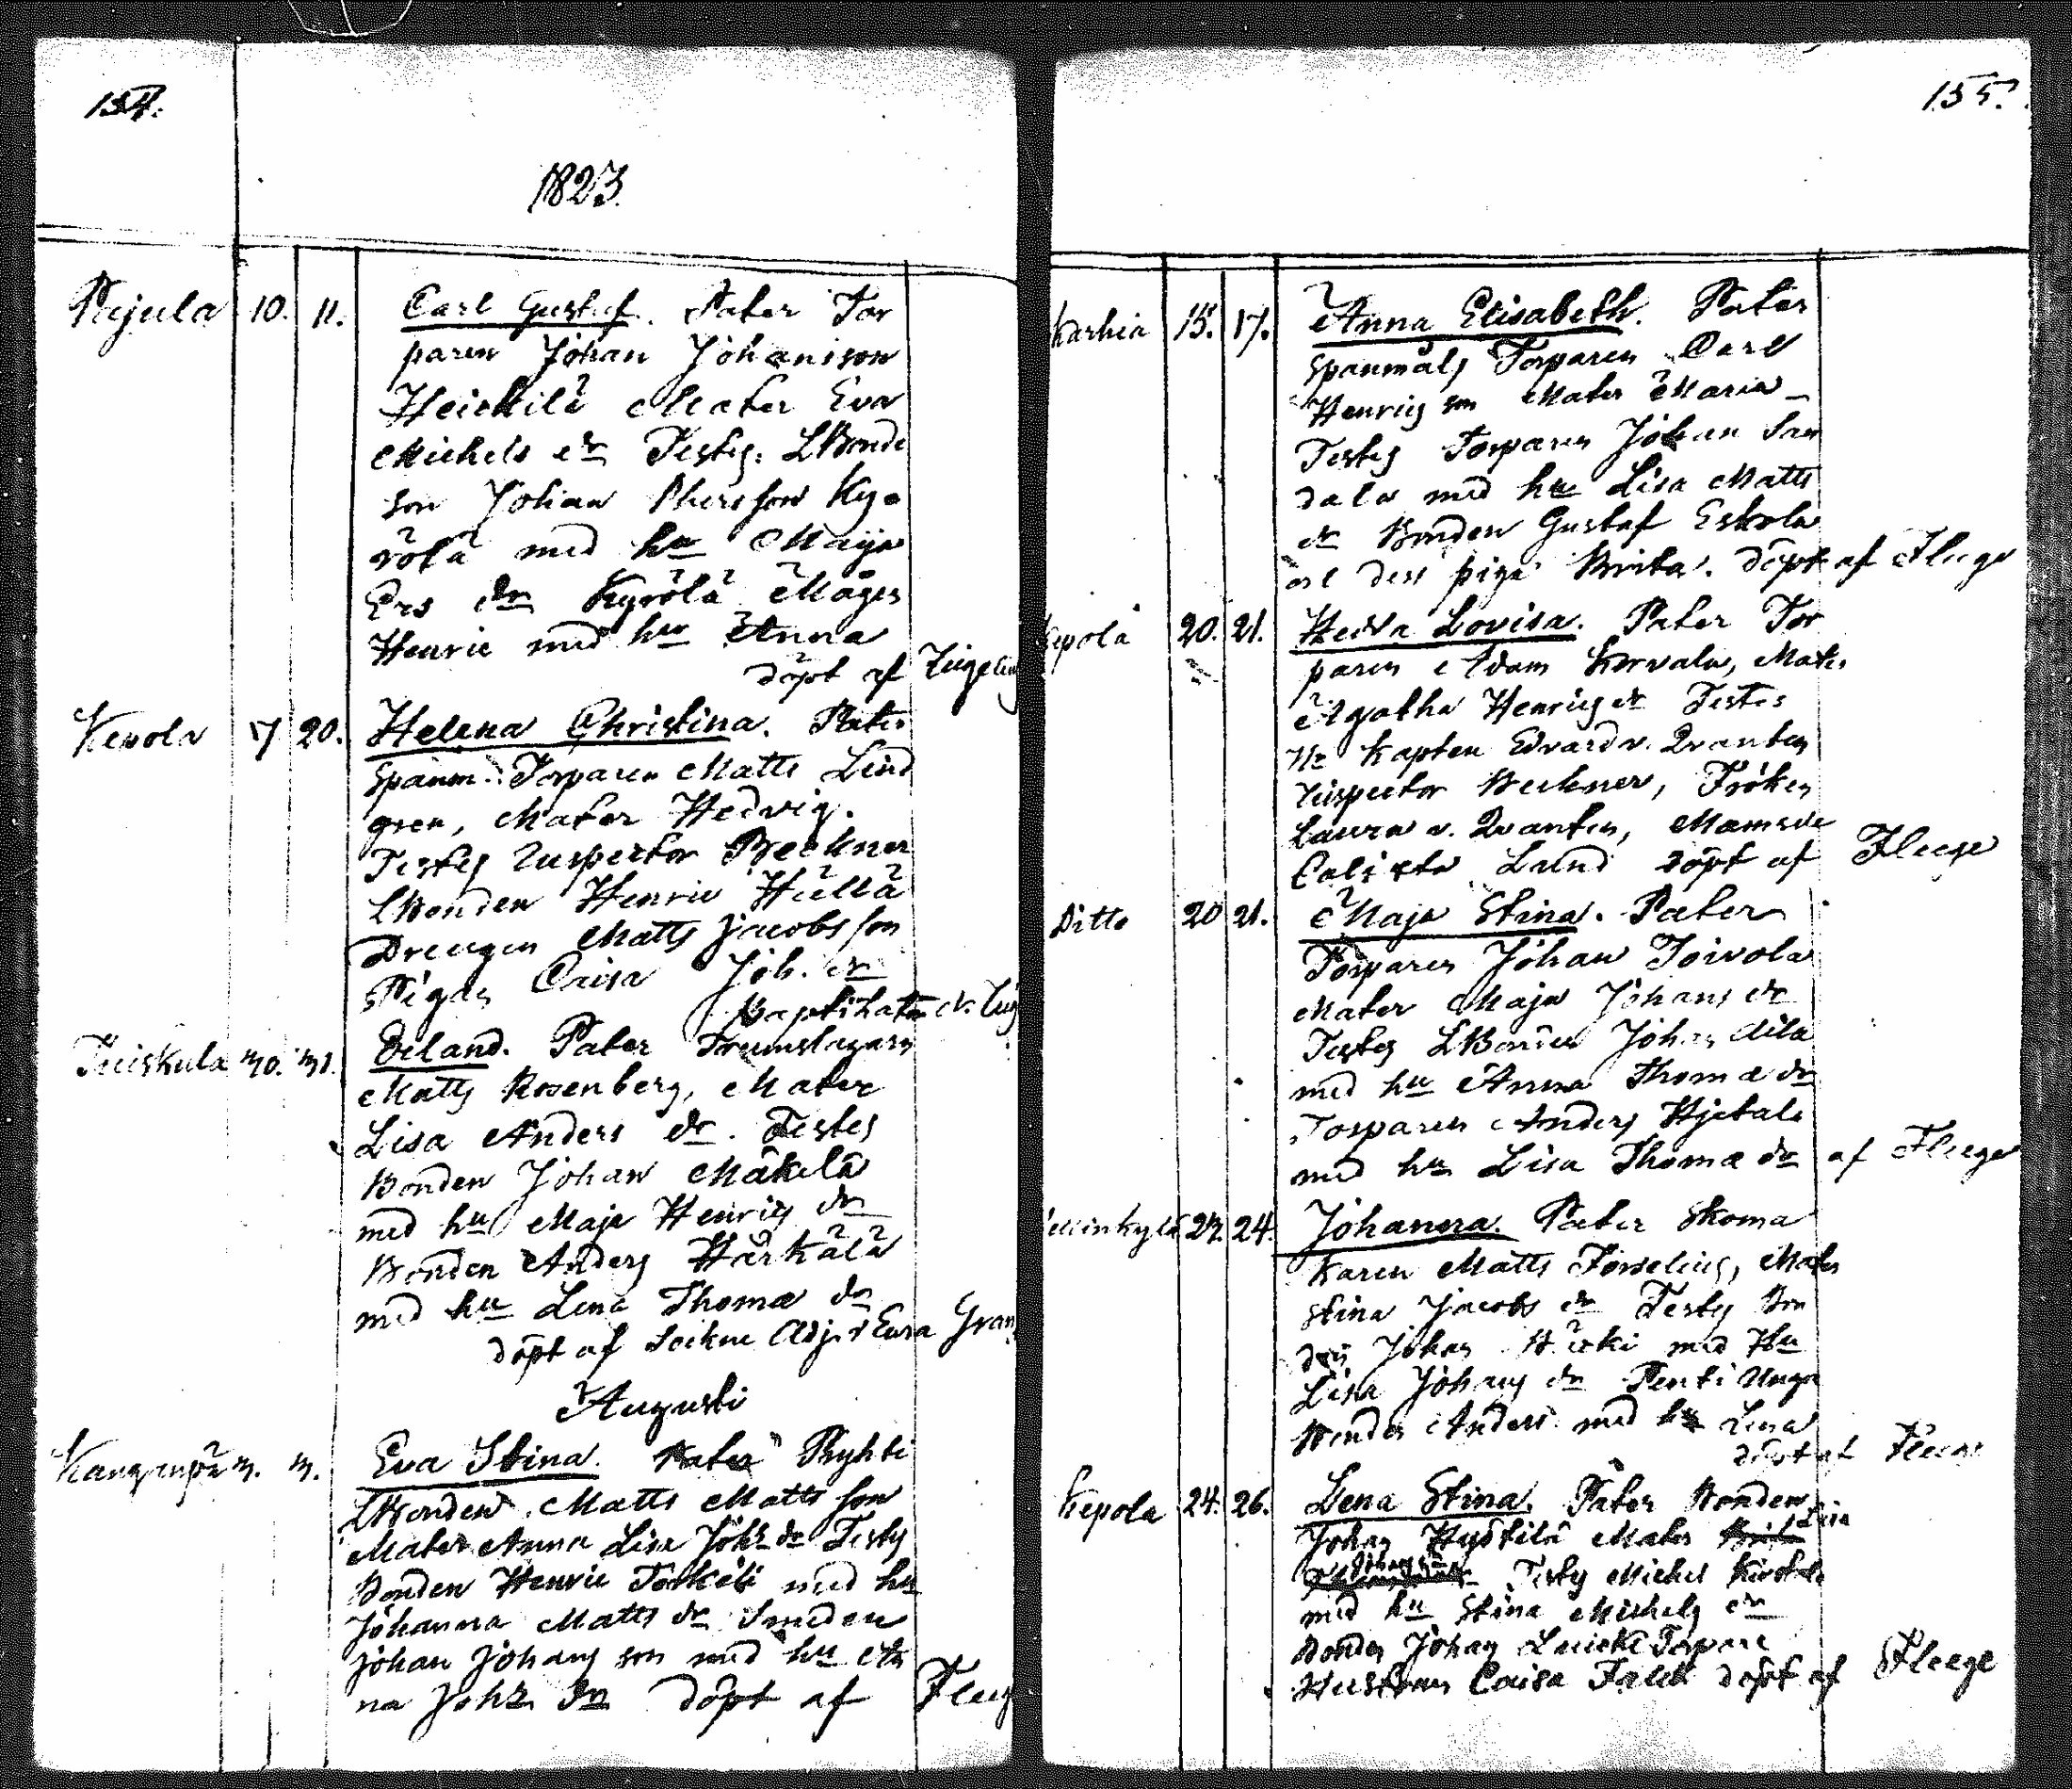 154.
1823.
Pajula 10. 11. Carl Gustaf. Pater Tor
paren Johan Johansson
Heickilä Mater Eva
Michels dr Testes. LBonde
son Johan Phersson Ky=
rölä med hu Maija
Ers dr Kyrölä Mågen
Henric med hu Anna
döpt af
Kepola 17 20. Helena Christina. Pater
Spanm. Torparen Matts Lind
gren, Mater Hedvig.
Testes Inspector Beckner
LBonden Henric
Drengen Matts Jacobsson
Pigan Caisa Joh. dr
Tuiskula 30. 31. Erland. Pater Trumslagarn
Matts Rosenberg, Mater
Lisa Anders dr. Testes
Bonden Johan Mäkelä
med hu Maja Henrics dr
Bonden Anders Härkälä
med hu Lena Thomæ dr
döpt af Sockne Adj. i Eura Gran
Augusti
3. 3. Eva Stina. Pater Pryhti
LBonden Matts Mattsson
Mater Anna Lisa Johs dr Testes
Bonden Henric Torkeli med hu
Johanna Matts dr Smeden
Johan Johansson med hu An
na Johs dr döpt af Fleeg
155.
Karhia 15. 17. Anna Elisabeth. Pater
Spanmåls Torparen Carl
Henricsson Mater Maria
Testes Torparen Johan San
dala med hu Lisa Matts
dr Bonden Gustaf Eskola
och dess piga Brita. döpt af Fleege
Kepola 20. 21. Hedda Lovisa. Pater Tor
paren Adam Korvala, Mater
Agatha Henrics dr Testes
Hr Kapten Edvard v. Qvanten
Inspector Beckner, Fröken
Laura v. Qvanten, Mamsel
Calixta Lund döpt af Fleege
Ditto 20 21. Maja Stina. Pater
Torparen Johan Toivola
Mater Maja Johans dr
Testes LBonden Johan Aila
med hu Anna Thomæ dr
Torparen Anders Hjetala
med hu Lisa Thomæ dr af Fleege
24. Johanna. Pater Skoma
karen Matts Forselius, Mater
Stina Jacobs dr Testes Bon
den Johan med Hu
Lisa Johans dr Pentti Unga
Bonden Anders med hu Lena
döpt af Fleege
Kepola 24. 26. Lena Stina. Pater Bonden
Johan Mater Lisa
Testes Michel
med hu Stina Michels dr
Bonden Johan Torpare
Hustrun Caisa Falck döpt af Fleege